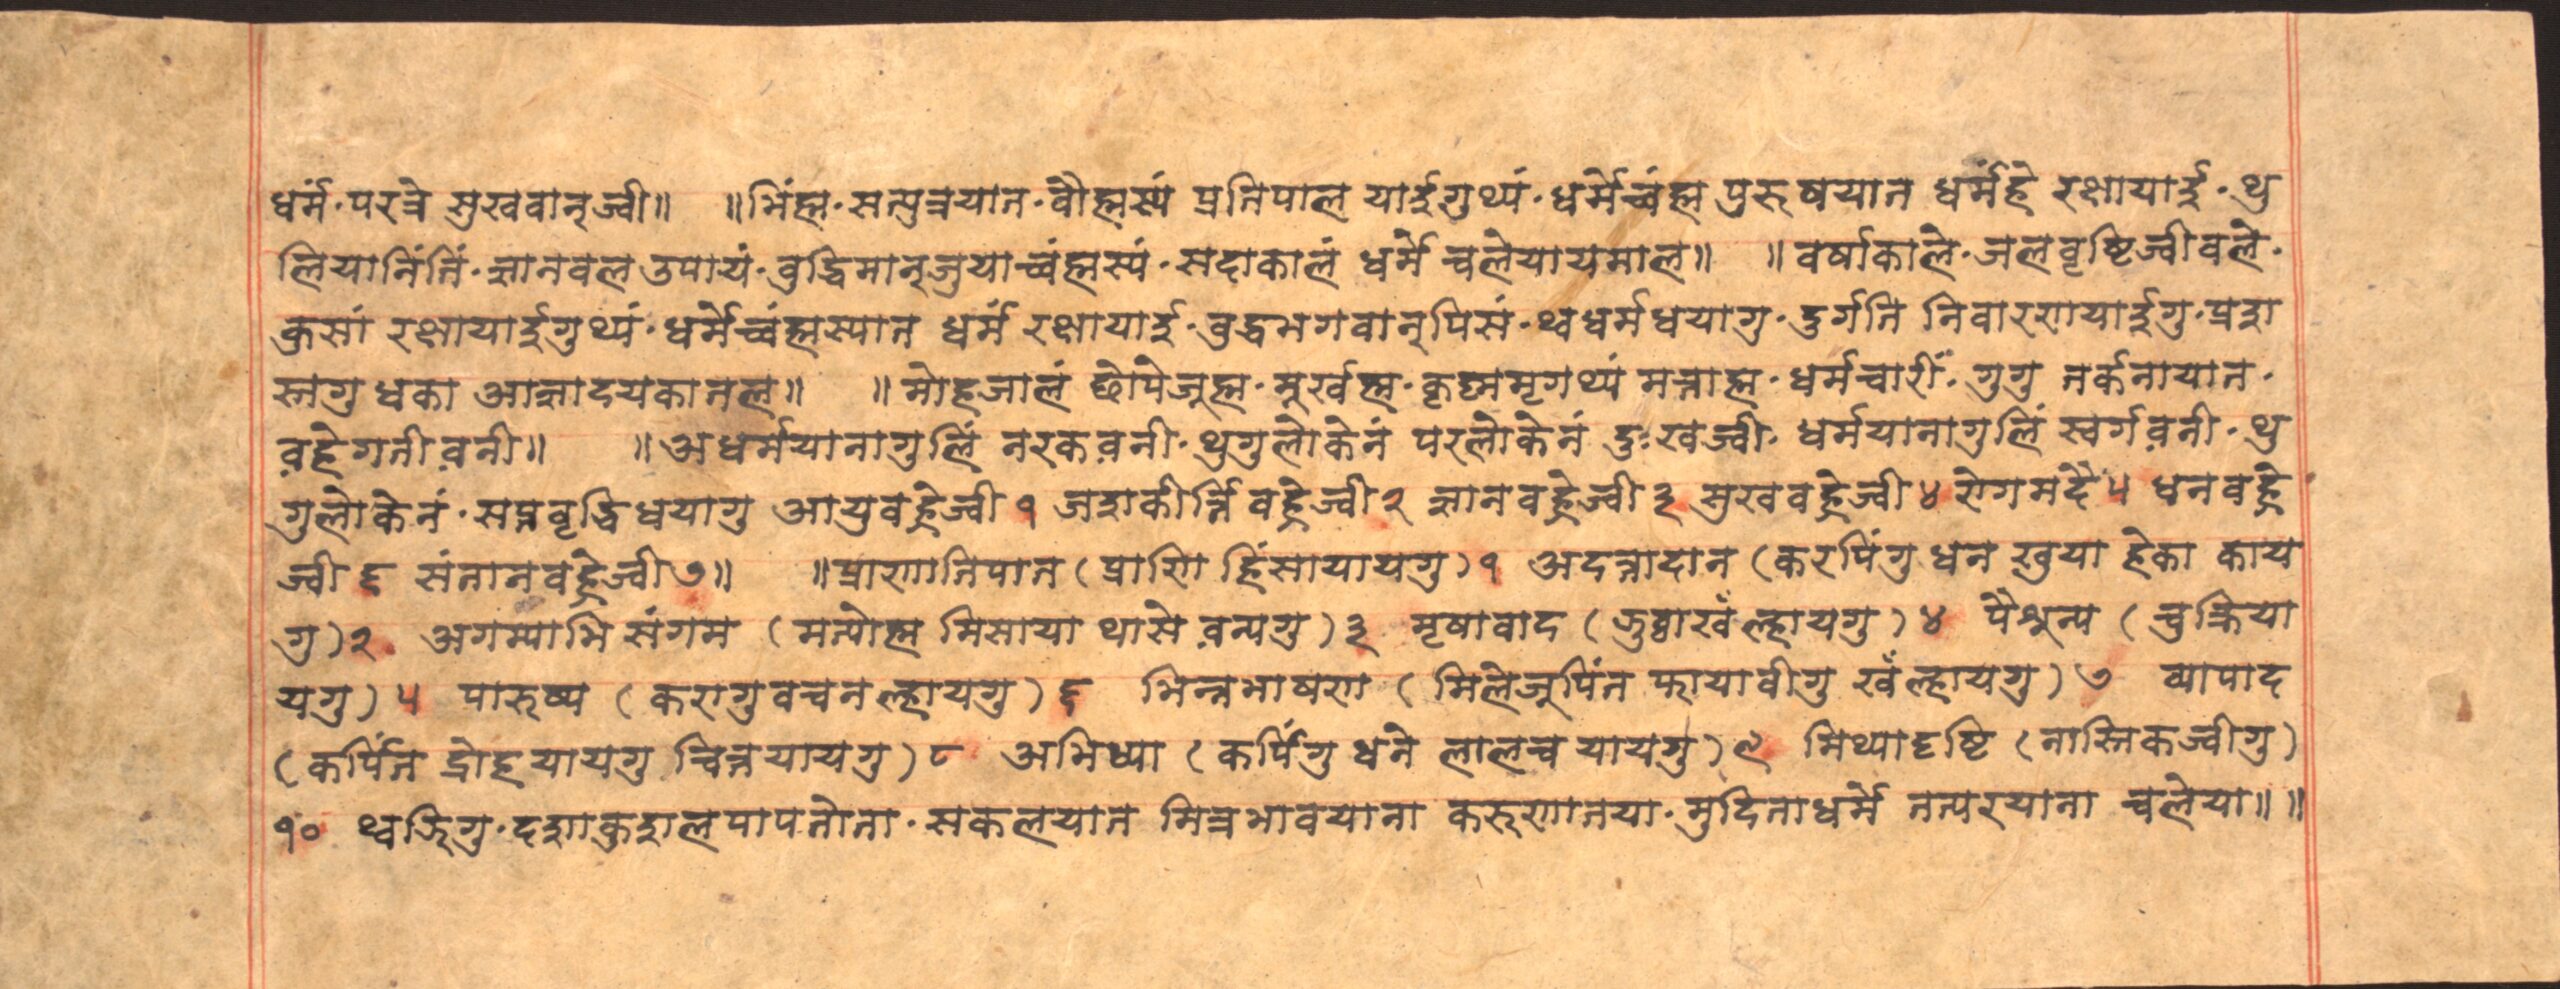 धर्मं·परत्रे सुखवानूज्वी॥ ॥भिंह्म·सत्पुत्रयात·वौह्मस्यं प्रतिपाल यार्इगुथ्यं·धर्मेच्वंह्म पुरूषयात धर्मंहे रक्षायार्इ·थु
लियानिंतिं·ज्ञानवल उपायं·वुद्धिमानूजुयाच्वंह्मस्यं·सदाकालं धर्मे चलेयायमाल॥ ॥वर्षाकाले·जलवृष्टिज्वीवले·
कुसां रक्षायार्इगुथ्यं·धर्मेच्वंह्मस्यात धर्मं रक्षायार्इ·वुद्धभगवानूपिसं·थ्वधर्मधयागु·दुर्गति निवारणयार्इगु·प्रश
स्तगु धका आज्ञादयकातल॥ ॥मोहजालं छोपेजूह्म·मूर्खह्म·कृष्णमृगथ्यं मत्ताह्म·धर्मचारीं·गुगु तर्कनायात·
व़हेगती व़नी॥ ॥अधर्मयानागुलिं नरकव़नी·थुगुलोकेनं परलोकेनं दुःखज्वी·धर्मयानागुलिं स्वर्गव़नी·थु
गुलोकेनं·सप्तवृद्धिधयागु आयुवह्रेज्वी १ जशकीर्त्तिवह्रेज्वी २ ज्ञानवह्रेज्वी ३ सुखवह्रेज्वी ४ रोगमदै ५ धनवह्रे
ज्वी ६ संतानवह्रेज्वी ७॥ ॥प्राणातिपात (प्राणि हिंसायायगु) १ अदत्तादान (करपिंगु धन खुया हेका काय
गु) २ अगम्याभिसंगम (मत्योह्म मिसाया थासे व़न्यगु) ३ मृषावाद (झुठ्ठाखँ ल्हायगु) ४ पैशून्य (चुक्लिया
यगु) ५ पारूष्य (करागुवचनल्हायगु) ६ भिन्नभाषण (मिलेजूपिंत फायावीगु खँ ल्हायगु) ७ व्यापाद
(कपिंत द्रोहयायगु चित्तयायगु) ८ अभिध्या (कपिंगु धने लालच यायगु) ९ मिथ्यादृष्टि (नास्तिकज्वीगु)
१० थ्वझिगु·दशाकुशलपापतोता·सकलयात मित्रभावयाना करूणातया·मुदिताधर्मे तत्परयाना चलेया॥॥